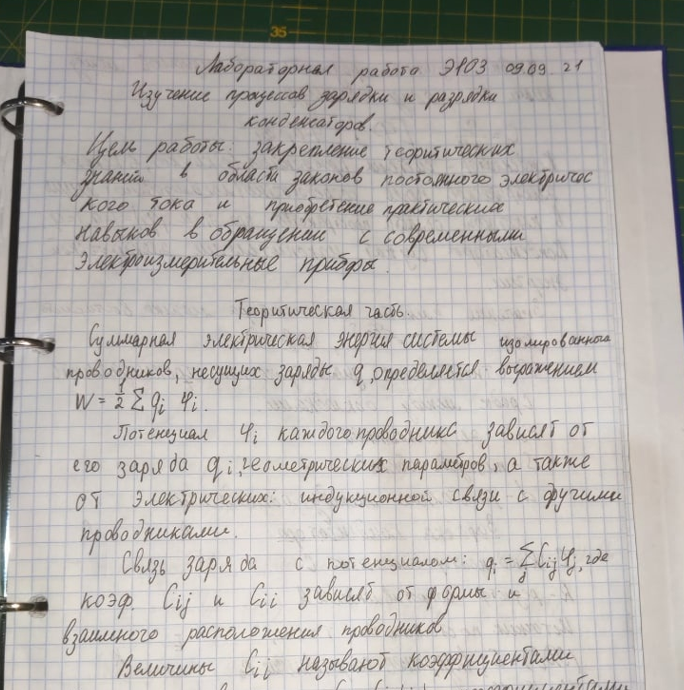 35
Лабораторная работа Э103 09.09 21
Изучение процессов зарядки и разрядки
конденсаторов.
Цель работы: закрепление теоритических
знаний в области законов постоянного электричес
кого тока и приобретение практических
навыков в обращении с современными
электроизмерительные прибры.
Теоритическая часть.
Суммарная электрическая энергия системы изолированных
проводников, несущих заряды q, определяется выражением
W = 1/2 Σ qi φi.
Потенциал φi каждого проводника зависят от
его заряда qi, геометрических параметров, а также
от электрических: индукционной связи с другими
проводниками.
Связь заряда с потенциалом: qi = Σj Cij φj, где
коэф. Cij и Cii зависят от формы и
взаимного расположения проводников
Величины Cij называют коэффициентами